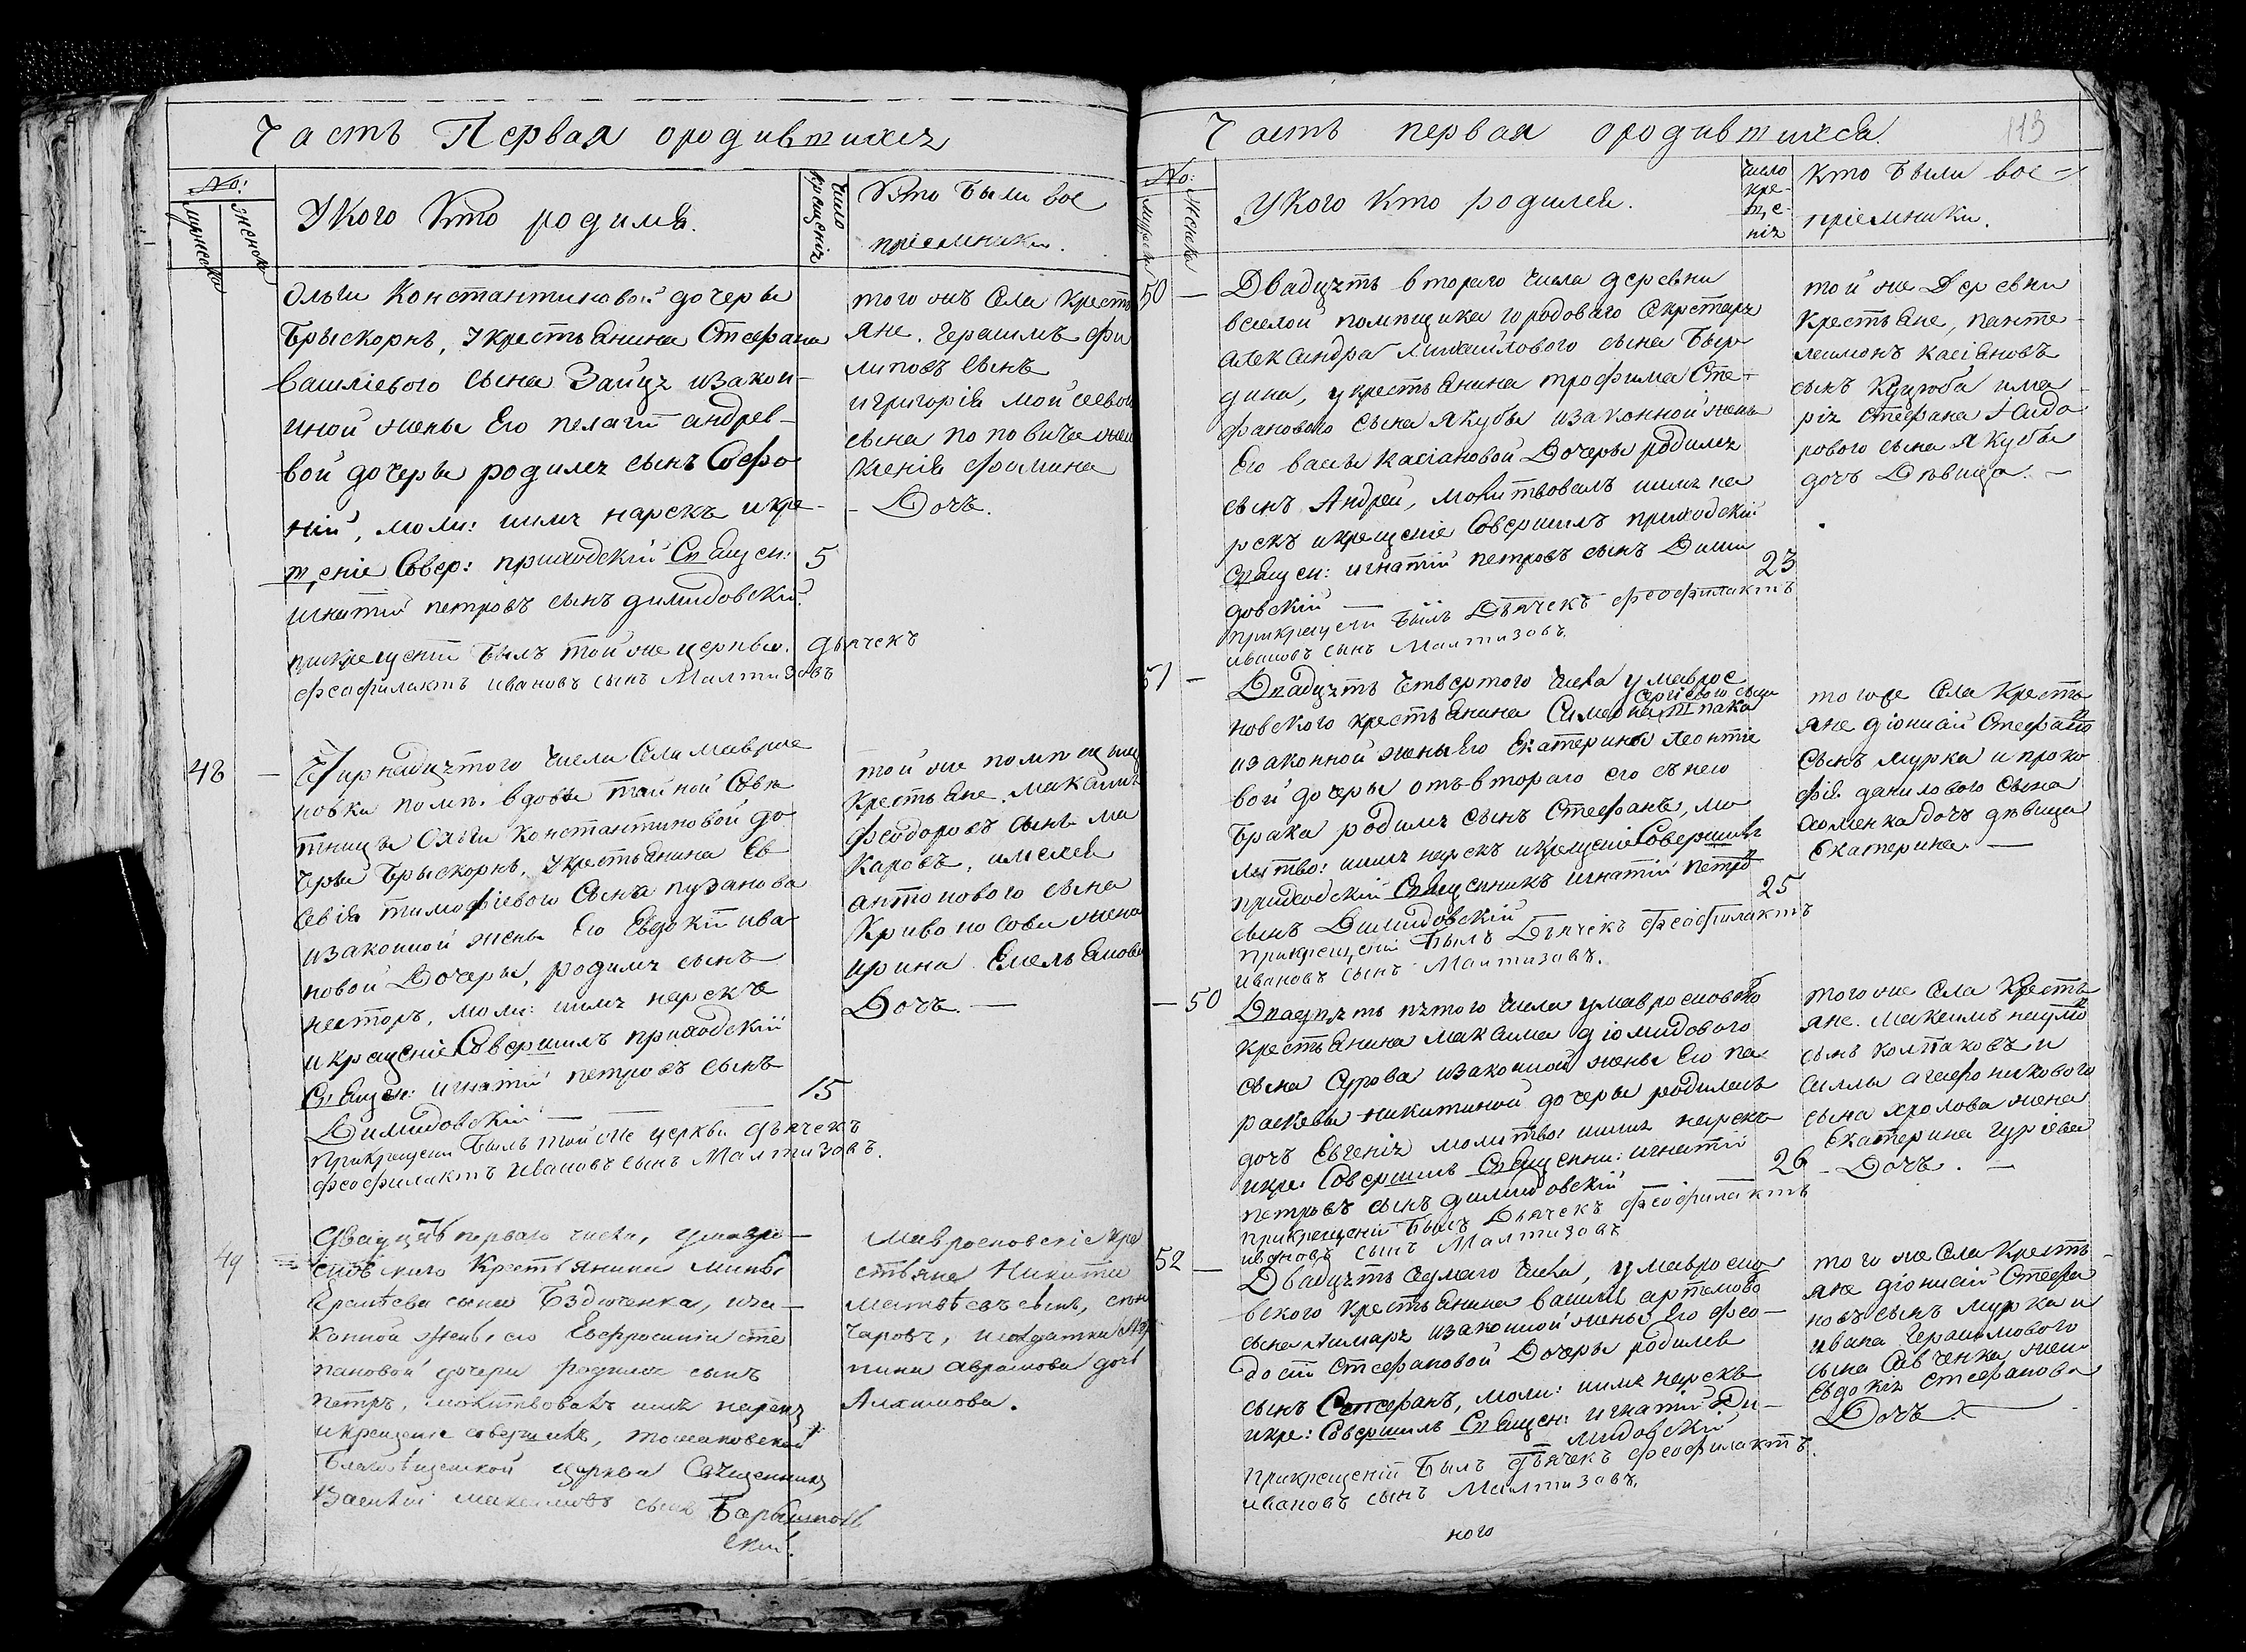 Часть Первая ородившихся
No:
мужеска
женска
У кого Кто родился.
Число крещенія
Кто были вос
пріемники.
Ольги Константиновой дочеры
Брыскорнъ, у крестьянина Стефана
Василіевого сына Заица иззакон-
ной жены Его пелагіи андрее-
вой дочеры родился сынъ Софро
ній, моли: имя нарекъ и кре-
щеніе Совер: приходскій Священ:
игнатій петровъ сынъ димидовскій.
5
прикрещеніи былъ той же церквы дьячекъ
феофилактъ ивановъ сынъ Малтизовъ
того жъ Села Крестъ
яне. герасимъ фи
липовъ сынъ
и григорія мойсеевого
сына поповича жена
Ксенія фомина
- Дочь.
48 —
Четырнадцятого Числа Села Маврино
новки помъ. вдовы тайной Совѣ
тницы Ольги Константиновой до
черы Брыскорнъ, у крестьянина Ев
севія тимофіевого Сына пузанова
иззаконной жены Его Евдокіи ива
новой Дочеры, родился сынъ
несторъ, моли: имя нарекъ
и крещеніе Совершилъ приходскій
Священ: игнатій петровъ сынъ
Димидовскій —
15
Прикрещеніи былъ той же церкви дьячекъ
феофилактъ Ивановъ сынъ Малтизовъ.
той же помѣщицы
Крестьяне. Максимъ
феодоровъ сынъ ма
каровъ, и
антонового сына
Кривоносова жена
ирина Емельянова
Дочь. —
49
Двадцять перваго числа, у мавро-
сновского Крестьянина Мины
сына Бздюченка, иза-
конной жены его Евфросиніи сте
пановой дочери родился сынъ
петръ, молитвовалъ имя нарекъ
и крещеніе совершилъ, томаковской
Благовѣщенской церкви Священникъ
Василій максимовъ сынъ
скій.
Мавросновскіе кре
стьяне Никита
Матвѣевъ сынъ,
чаровъ, и солдатка Аг
пина аврамова дочь
Алхимова.
Часть первая ородившихся.
113
No:
Мужеск
Женска
У кого Кто родился.
Число
кре-
ще-
нія
Кто были вос-
пріемники.
50 —
Двадцять второго Числа деревни
веселой помѣщика городоваго Секретаря
Александра Михайлового сына Быр
дина, у крестьянина трофима Сте-
фанового Сына Якубы иззаконной жены
Его васы Касіановой Дочеры родился
сынъ Андрей, молитвовалъ имя на
рекъ и крещеніе Совершилъ приходскій
Священ: игнатій петровъ сынъ Дими
довскій —
23
прикрещеніи былъ Дьячекъ феофилактъ
ивановъ сынъ Малтизовъ.
той же Деревни
Крестьяне, панте-
леимонъ касіановъ
сынъ Куцюба и ма
рія Стефана
рового сына Якубы
дочь Дѣвица. —
51 —
Двадцять Четвертого Числа у мавроc
новского крестьянина Симеона Сергіевого сына Шпака
иззаконной жены Его Екатерины Леонтіе
вой дочеры отъ второго его с нею
брака родился сынъ Стефанъ, мо
литво: имя нарекъ и крещеніе Совершилъ
приходскій Священникъ игнатій Петро
сынъ Димидовскій
25
прикрещеніи былъ Дьячекъ феофилактъ
ивановъ сынъ Малтизовъ.
того же Села Кресть
яне діонисій Стефано
сынъ мурка и проко
фія данилового сына
хоменка дочь дѣвица
Екатерина. —
— 50
Двадцять пятого Числа у мавросновско
крестьянина максима діомидового
сына Сурова иззаконной жены Его па
раскевы никитиной дочеры родилась
дочь Евгенія молитво: имя нарекъ
и кре: Совершилъ Священни: игнатій
петровъ сынъ димидовскій
26
прикрещеніи былъ Дьячекъ феофилактъ
ивановъ сынъ Малтизовъ
того же Села Кресть
яне. Максимъ наумо
сынъ колпаковъ и
силы агафоникового
сына хролова жена
Екатерина гуріева
- Дочь. —
52 —
Двадцять Седмаго Числа, у мавросно
вского Крестьянина васили артемово
сына иззаконной жены Его фео-
досіи Стефановой Дочеры родился
сынъ Стефанъ, моли: имя нарекъ
и кре: Совершилъ Священ: игнатій Ди-
мидовскій
Прикрещеній былъ Дьячекъ феофилактъ
ивановъ сынъ Малтизовъ.
того же Села Кресть-
яне діонисій Стефа
новъ сынъ мурка и
ивана герасимового
сына Савченка жена
Евдокія Стефанова
Дочь.
ного